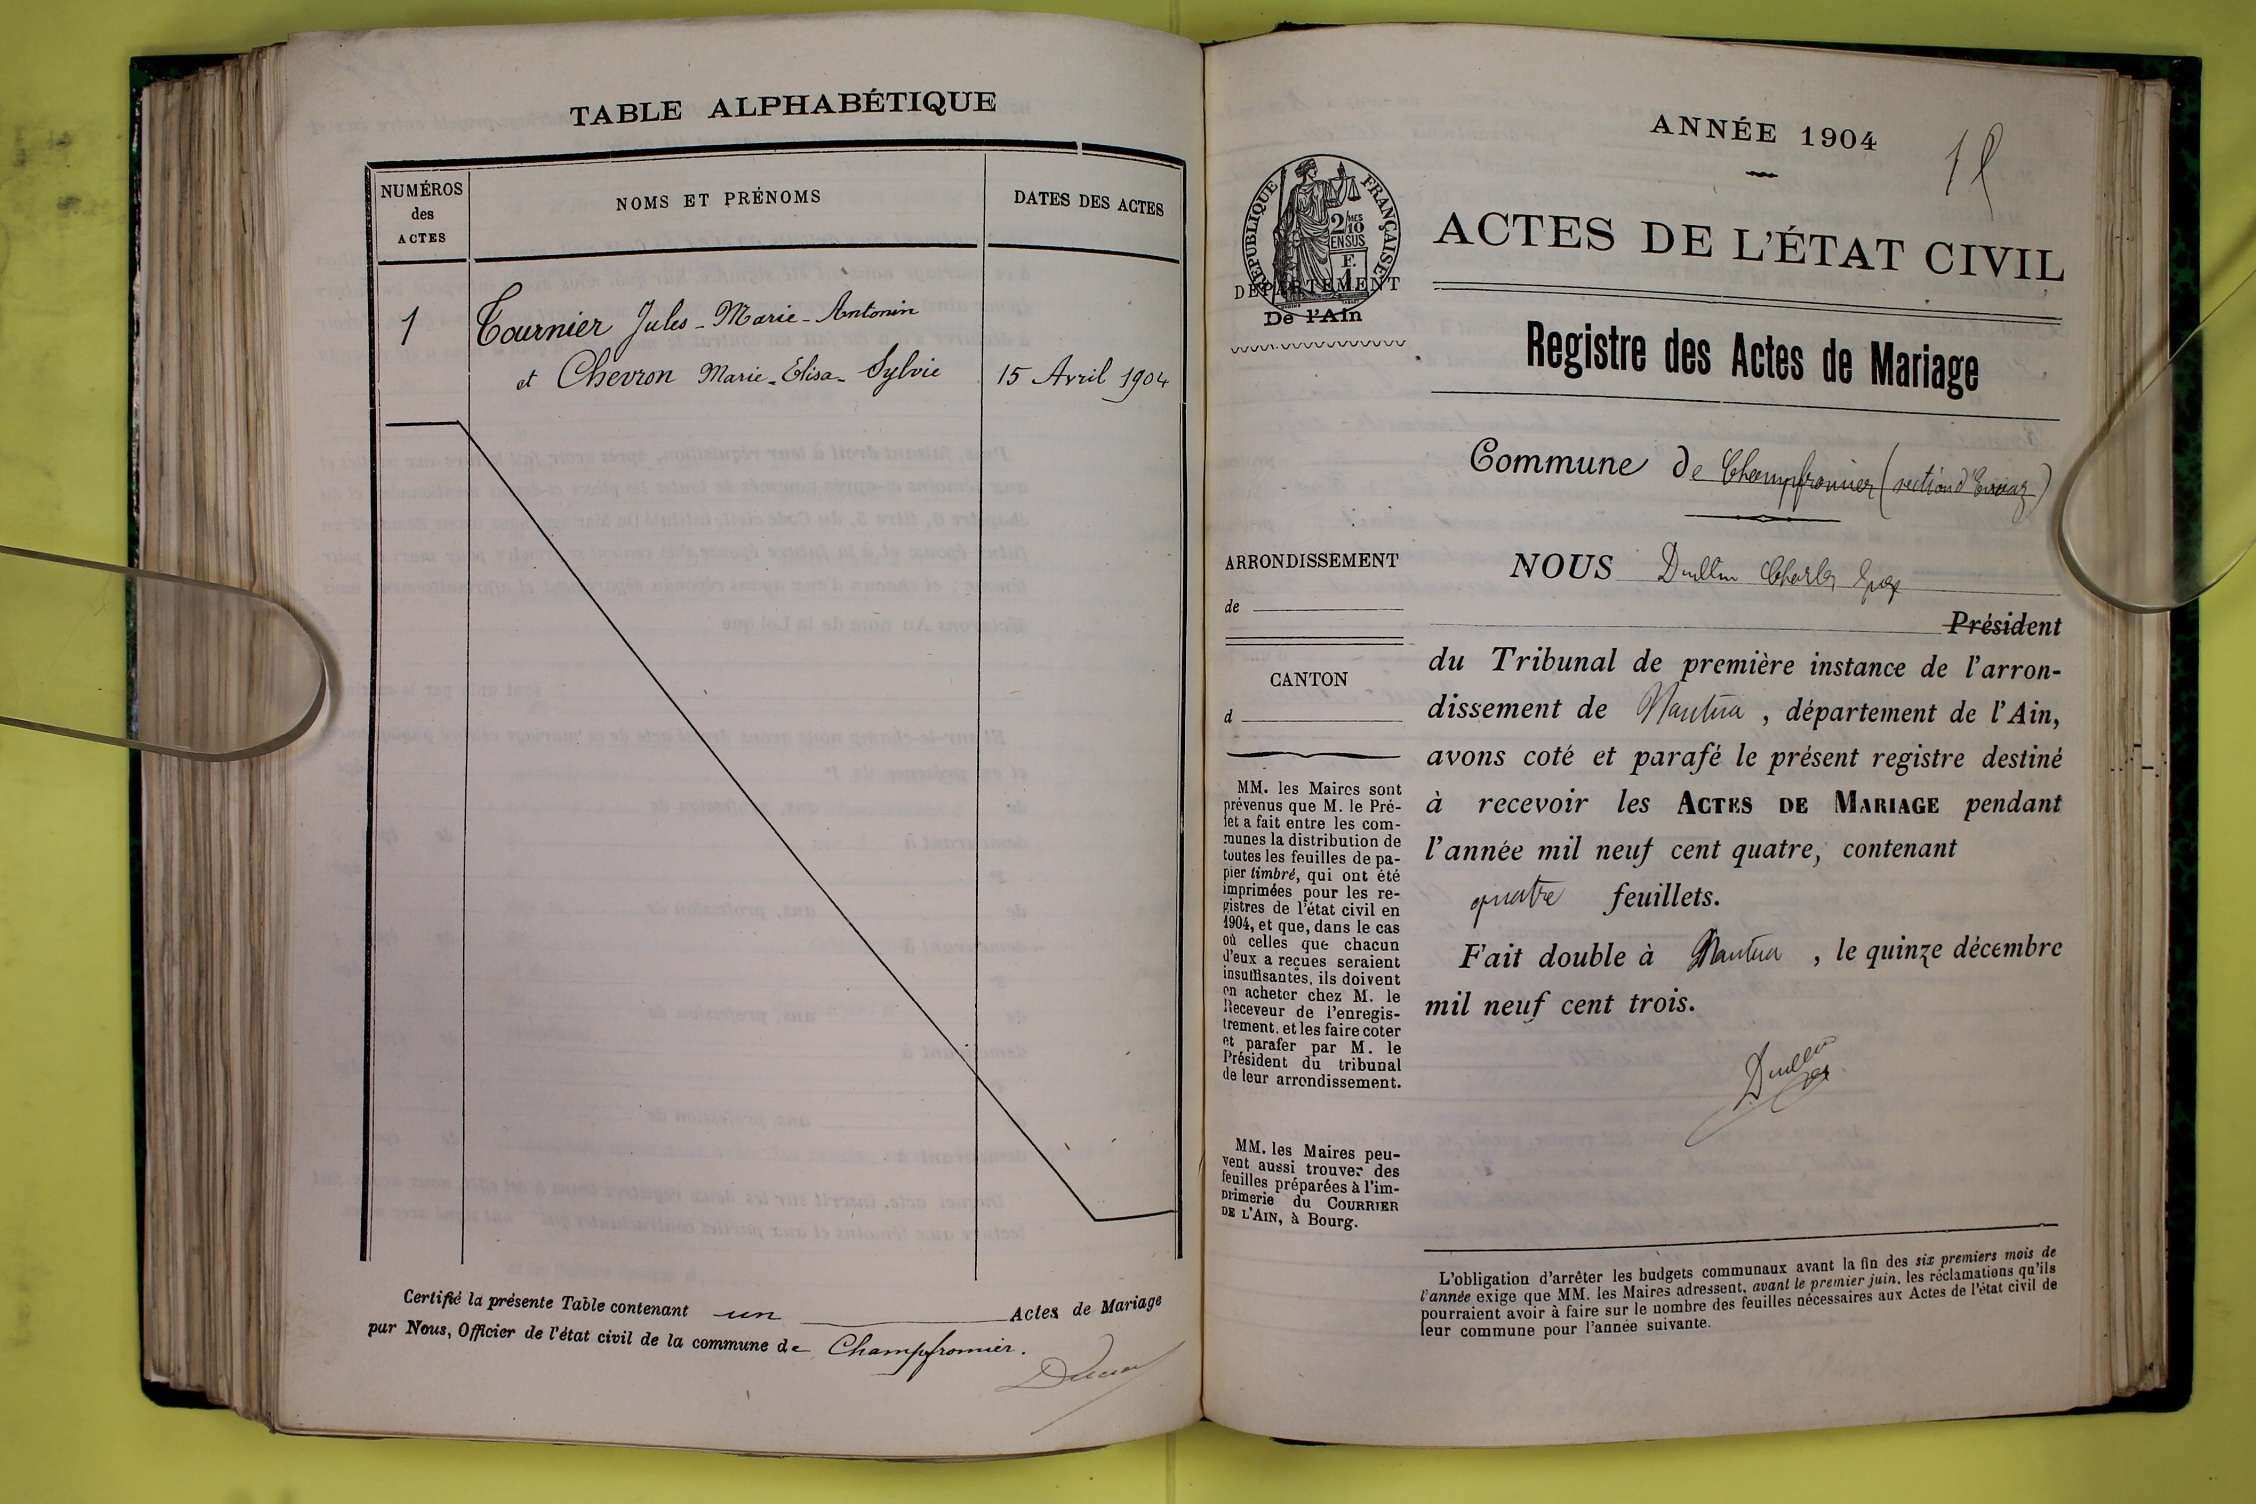 TABLE ALPHABÉTIQUE
NUMÉROS
des
ACTES
NOMS ET PRÉNOMS
DATES DES ACTES
1
Tournier Jules - Marie - Antonin
et Chevron Marie - Elisa - Sylvie
15 Avril 1904
Certifié la présente Table contenant un Actes de Mariage
par Nous, Officier de l'état civil de la commune de Champfromier.
Ducret
ANNÉE 1904
RÉPUBLIQUE FRANÇAISE
2/10 MES
EN SUS
F.
1
DÉPARTEMENT
De l'Ain
ACTES DE L'ÉTAT CIVIL
Registre des Actes de Mariage
Commune de Champfromier (section d'
NOUS Dullin Charles
Président
du Tribunal de première instance de l'arron-
dissement de Nantua, département de l'Ain,
avons coté et parafé le présent registre destiné
à recevoir les ACTES DE MARIAGE pendant
l'année mil neuf cent quatre, contenant
quatre feuillets.
Fait double à Nantua, le quinze décembre
mil neuf cent trois.
Dullin
ARRONDISSEMENT
de
CANTON
d
MM. les Maires sont
prévenus que M. le Pré-
fet a fait entre les com-
munes la distribution de
toutes les feuilles de pa-
pier timbré, qui ont été
imprimées pour les re-
gistres de l'état civil en
1904, et que, dans le cas
où celles que chacun
d'eux a reçues seraient
insuffisantes, ils doivent
en acheter chez M. le
Receveur de l'enregis-
trement, et les faire coter
et parafer par M. le
Président du tribunal
de leur arrondissement.
MM. les Maires peu-
vent aussi trouver des
feuilles préparées à l'im-
primerie du COURRIER
DE L'AIN, à Bourg.
L'obligation d'arrêter les budgets communaux avant la fin des six premiers mois de
l'année exige que MM. les Maires adressent, avant le premier juin, les réclamations qu'ils
pourraient avoir à faire sur le nombre des feuilles nécessaires aux Actes de l'état civil de
leur commune pour l'année suivante.